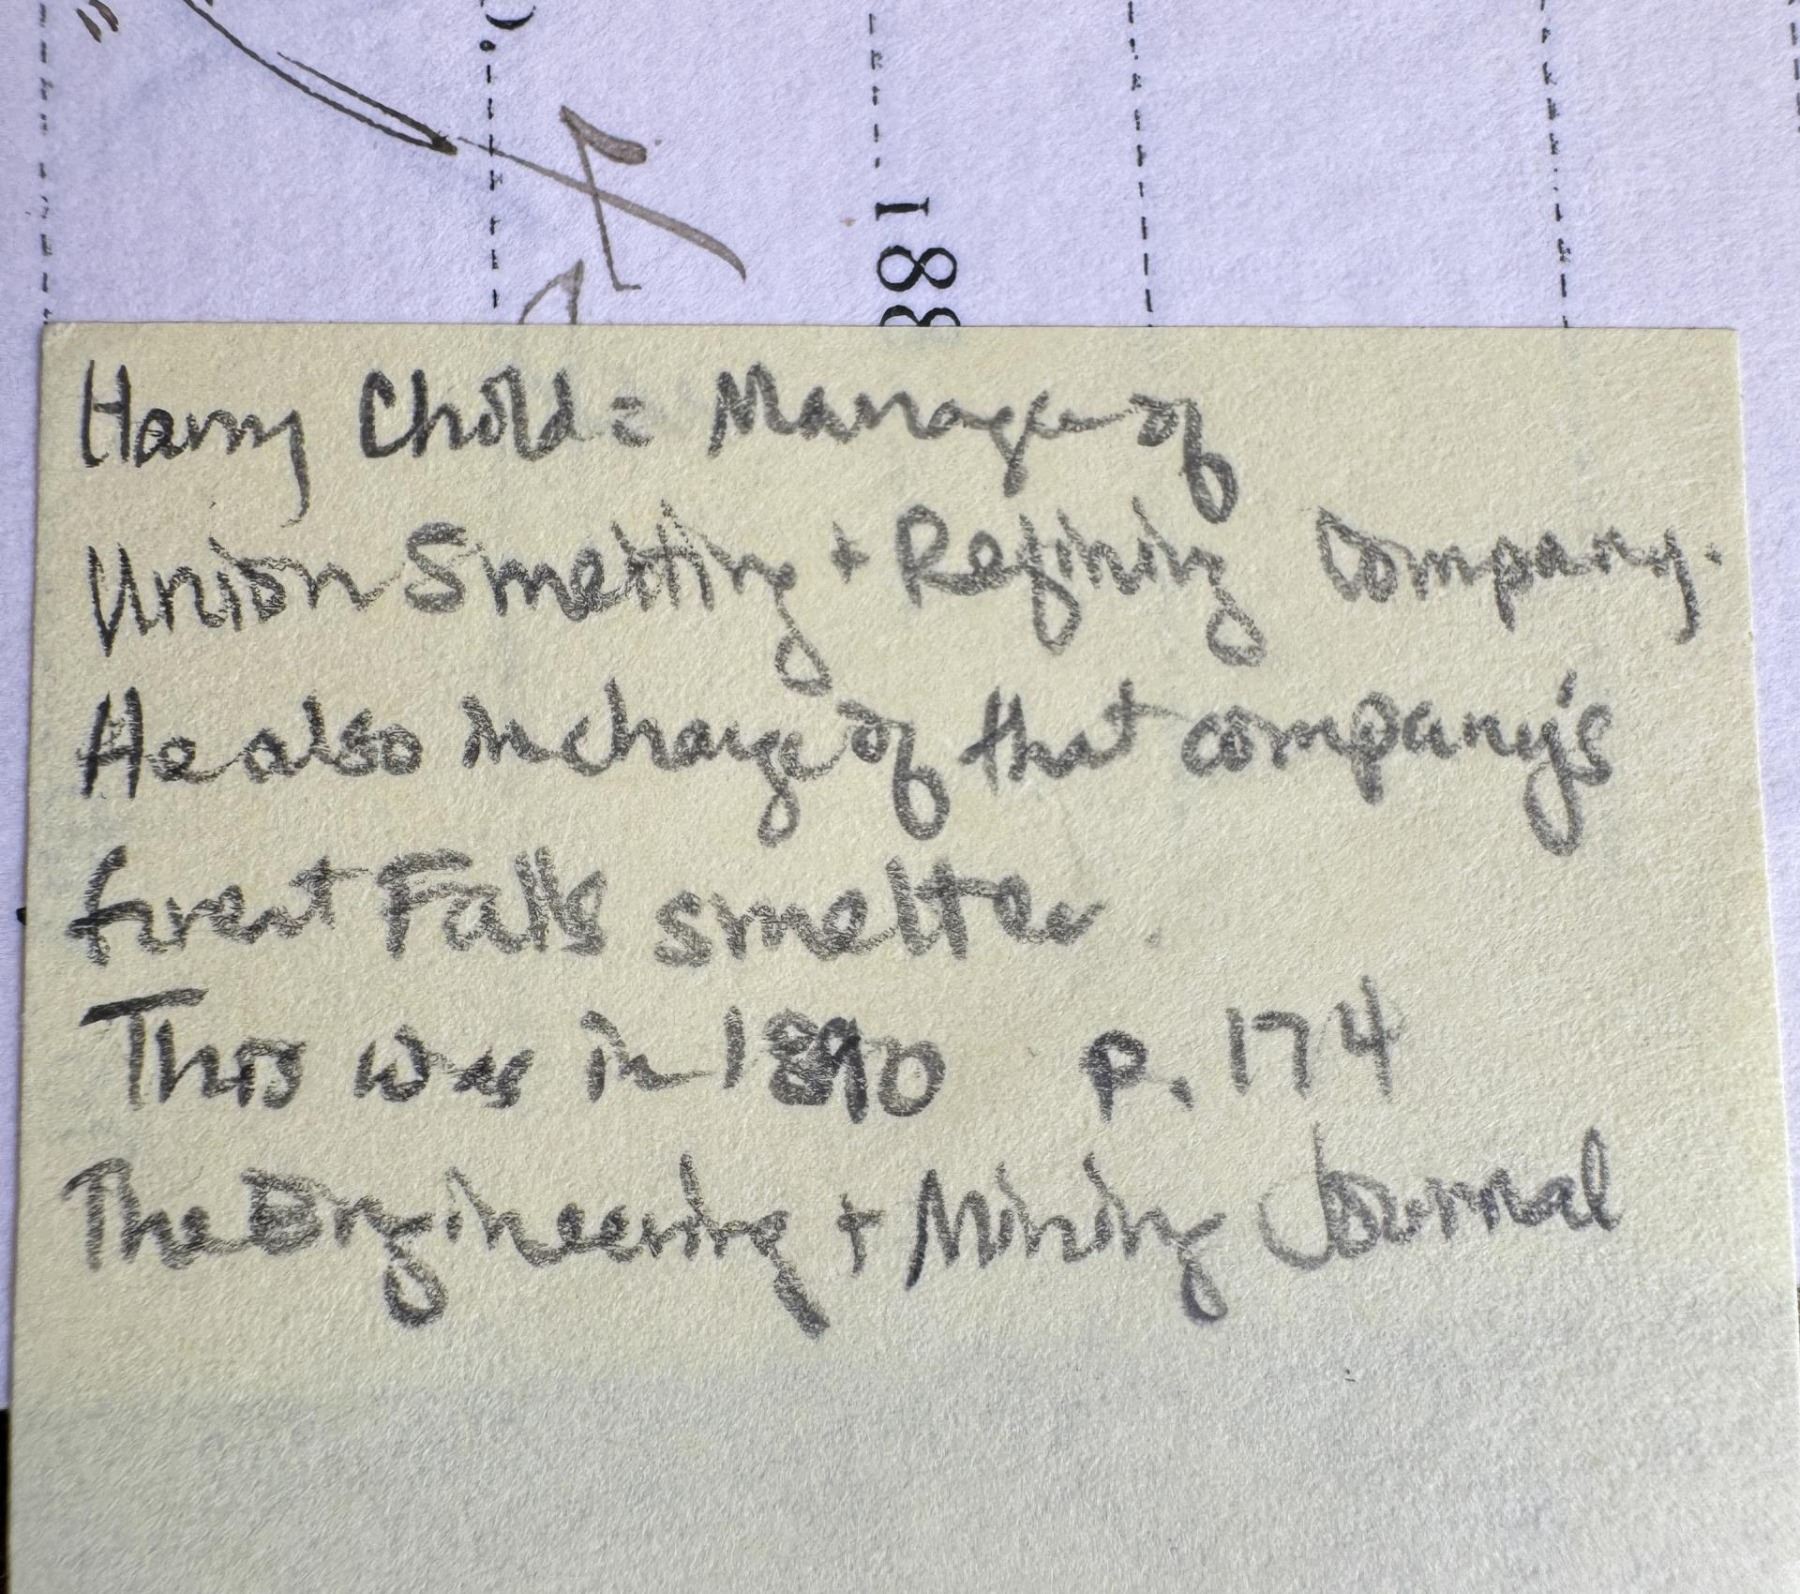 188
Harry Child = Manager of
Union Smelting + Refining Company.
He also in charge of that company's
Great Falls smelter.
This was in 1890 p. 174
The Engineering + Mining Journal